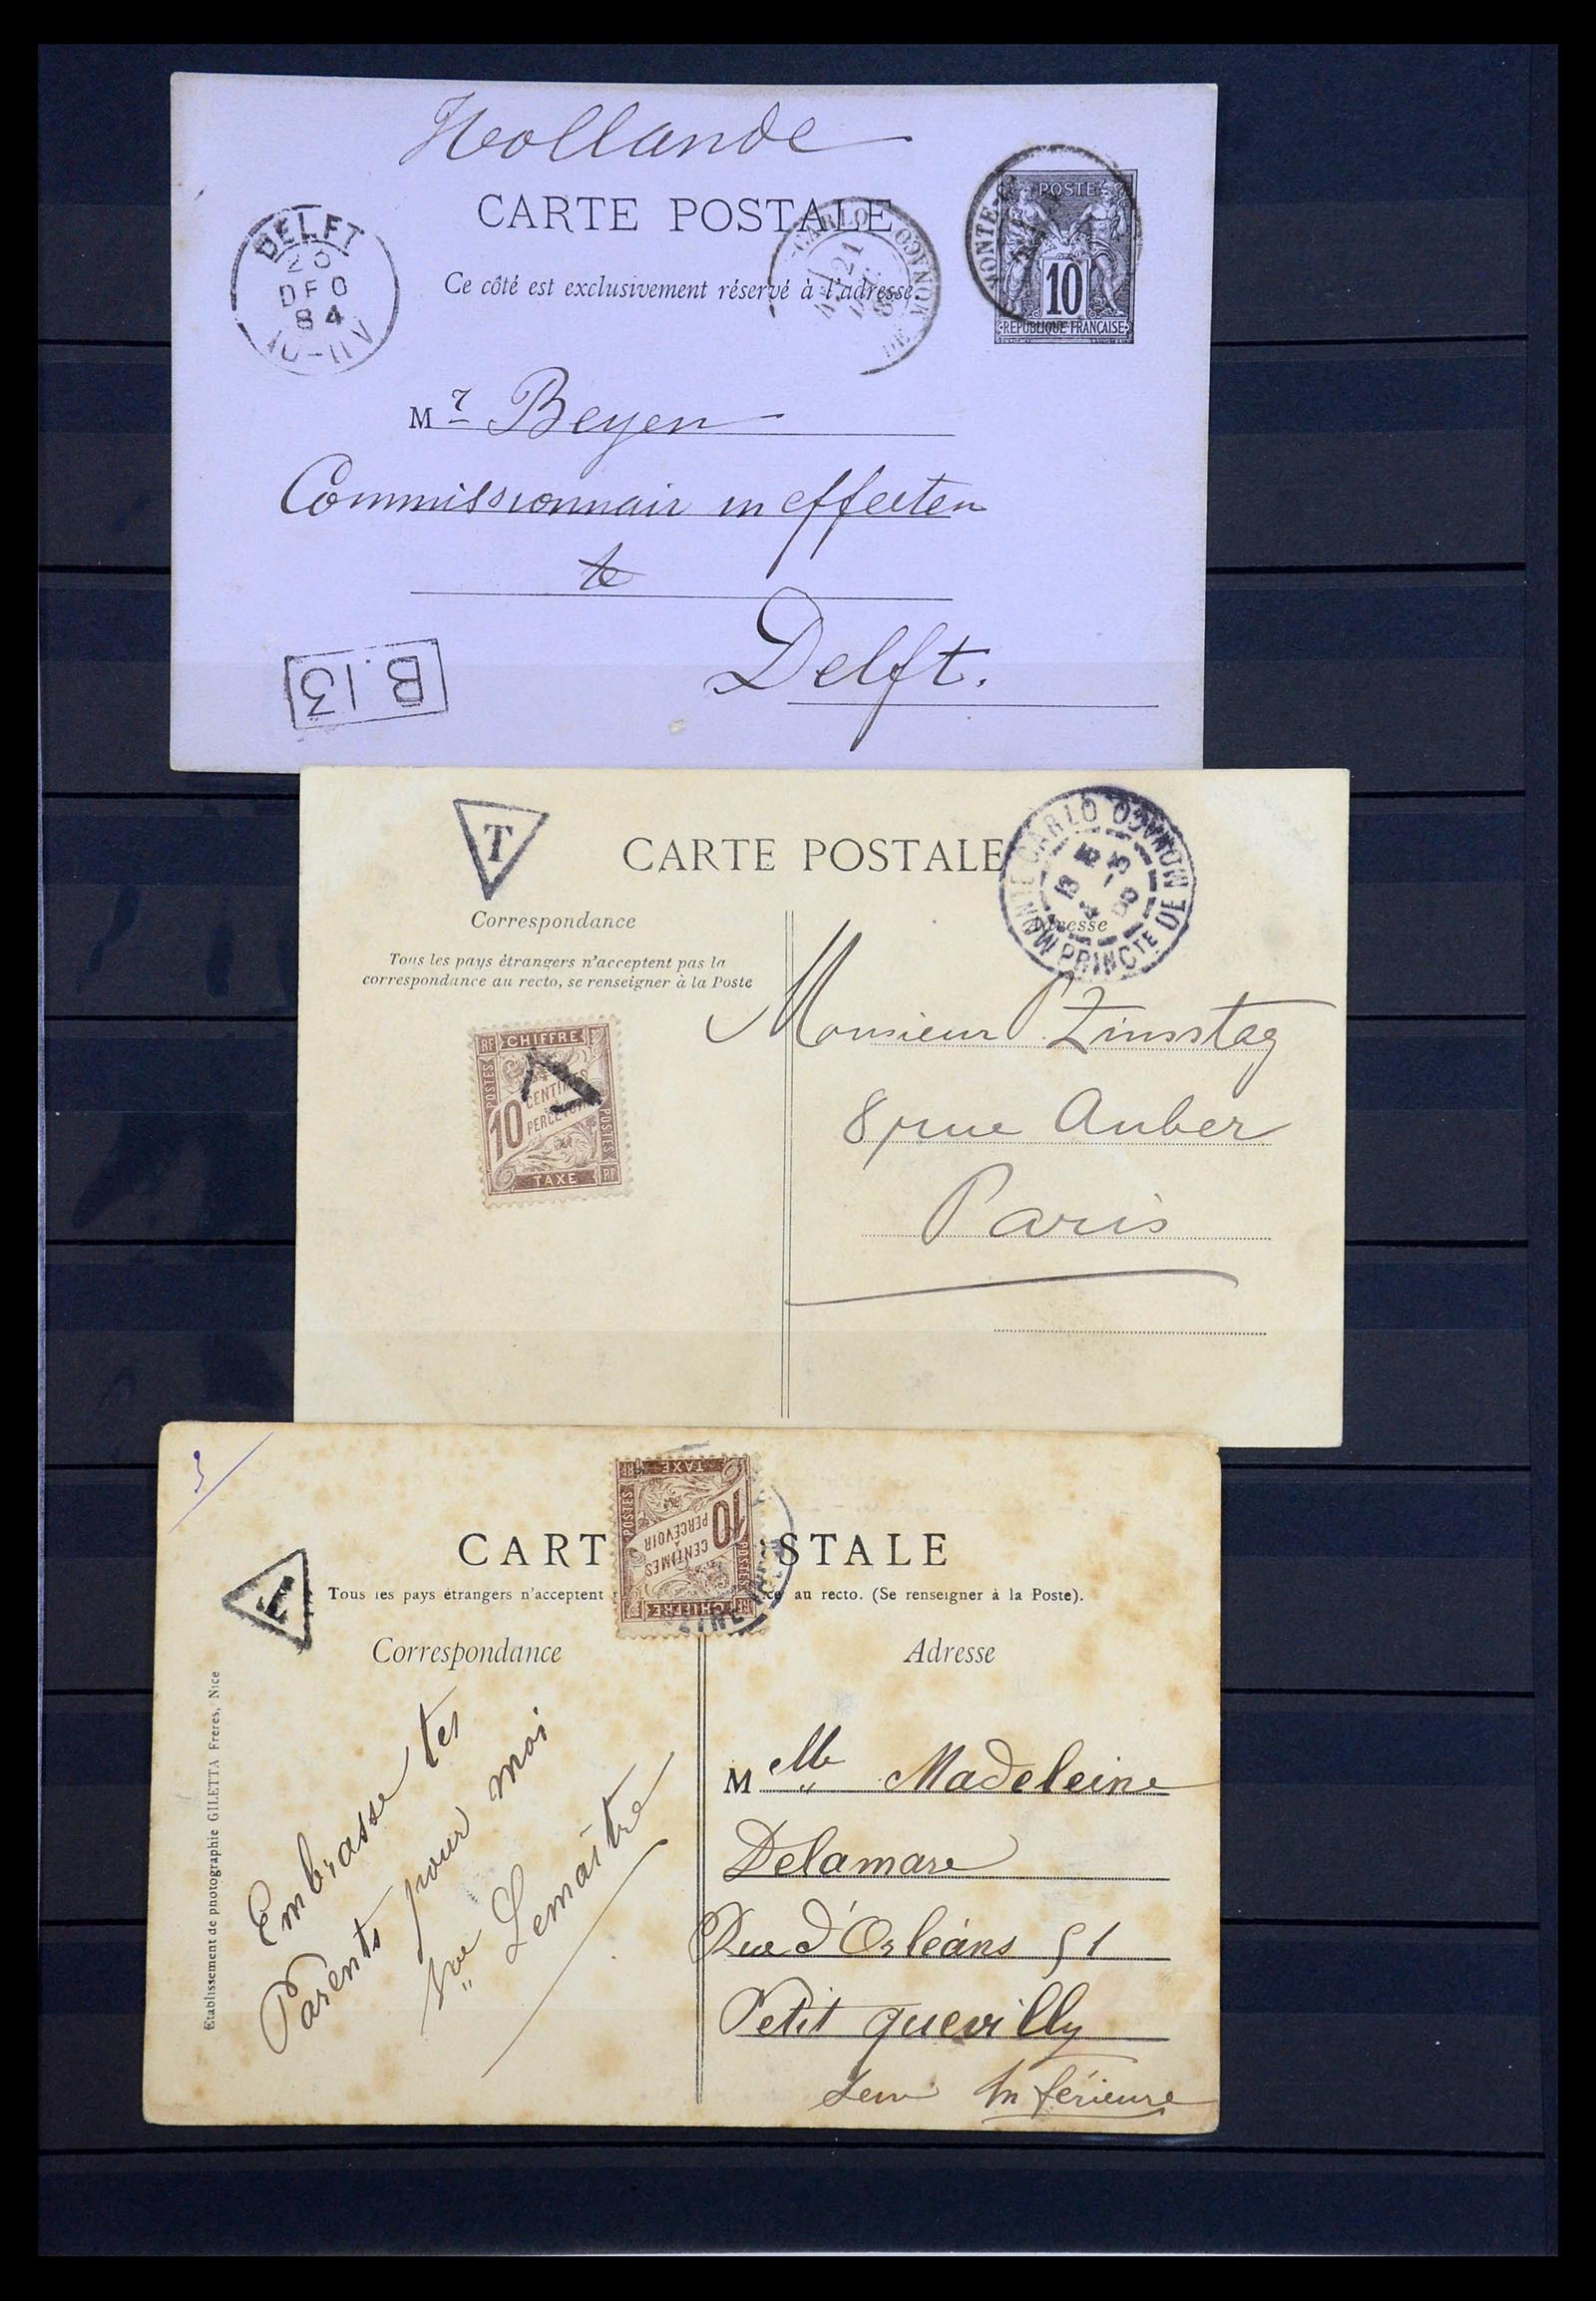 Hollande
CARTE POSTALE
Ce côté est exclusivement réservé à l'adresse.
DELFT
20
DEC
84
10-11V
CARLO
21
MONACO
DE
MONTE-
POSTE
10
REPUBLIQUE FRANÇAISE
Mr Beyen
Commissionnair in effecten
te
Delft.
B.13
T
CARTE POSTALE
MONTE CARLO
PRINCTE DE MONACO
Correspondance
Adresse
Tous les pays étrangers n'acceptent pas la
correspondance au recto, se renseigner à la Poste
RF CHIFFRE
POSTES
10 CENTIMES
À
PERCEVOIR
POSTES
TAXE RF
Monsieur Zinsstag
8 rue Auber
Paris
T
CART STALE
RF TAXE
POSTES
10 CENTIMES
À
PERCEVOIR
POSTES
CHIFFRE RF
Tous les pays étrangers n'acceptent ce au recto. (Se renseigner à la Poste).
Correspondance
Adresse
Etablissement de photographie GILETTA Frères, Nice
Embrasse tes
Parents pour moi
Vve Lemaître
Melle Madeleine
Delamare
Rue d'Orléans 51
Petit quevilly
Inférieure